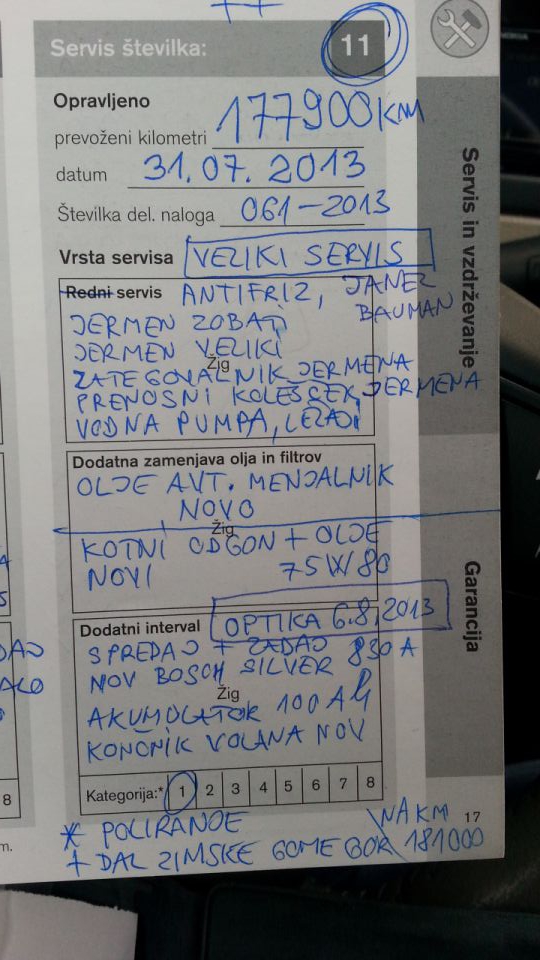 ++
Servis številka: 11
Opravljeno
prevoženi kilometri 177900 KM
datum 31.07.2013
Številka del. naloga 061-2013
Vrsta servisa VELIKI SERVIS
Redni servis ANTIFRIZ, JANEZ
BAUMAN
JERMEN ZOBAT
JERMEN VELIKI
Žig
ZATEGOVALNIK JERMENA
PRENOSNI KOLEŠČEK JERMENA
VODNA PUMPA, LEŽAJI
Dodatna zamenjava olja in filtrov
OLJE AVT. MENJALNIK
NOVO
Žig
KOTNI ODGON + OLJE
NOVI 75W80
Dodatni interval OPTIKA 6.8.2013
SPREDAJ + ZADAJ
NOV BOSCH SILVER 830A
Žig
AKUMULATOR 100 Ah
KONČNIK VOLANA NOV
Kategorija:* 1 2 3 4 5 6 7 8
* POLIRANJE
+ DAL ZIMSKE GUME GOR NA KM 181000
17
Servis in vzdrževanje
Garancija
8
m.